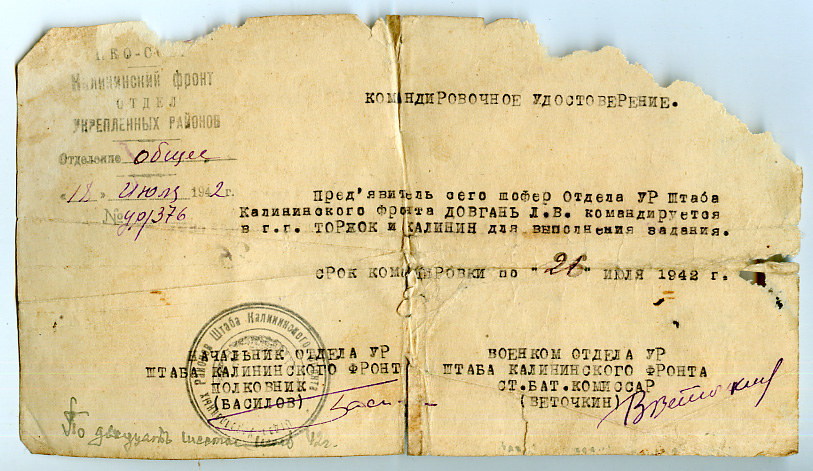 Калининский фронт
ОТДЕЛ
УКРЕПЛЕННЫХ РАЙОНОВ
Отделение общее
"18" Июля 1942 г.
№ ур/376
КОМАНДИРОВОЧНОЕ УДОСТОВЕРЕНИЕ.
Пред'явитель сего шофер Отдела УР Штаба
Калининского фронта ДОВГАНЬ Л.В. командируется
в г.г. ТОРЖОК и КАЛИНИН для выполнения задания.
СРОК КОМАНДИРОВКИ по "26" ИЮЛЯ 1942 г.
НАЧАЛЬНИК ОТДЕЛА УР
ШТАБА КАЛИНИНСКОГО ФРОНТ
ПОЛКОВНИК
(БАСИЛОВ)
ВОЕНКОМ ОТДЕЛА УР
ШТАБА КАЛИНИНСКОГО ФРОНТА
СТ.БАТ.КОМИССАР
(ВЕТОЧКИН)
Районов Штаба Калининского фронта
По двадцать шестое 42г.